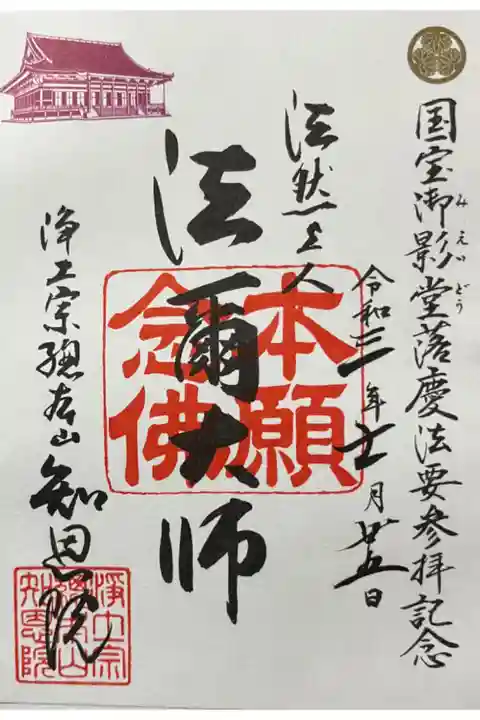 国宝御影堂落慶法要参拝記念
みえいどう
令和三年十一月廿五日
法然上人
法爾大師
本願
念佛
浄土宗總本山 知恩院
淨土宗
總本山
知恩院